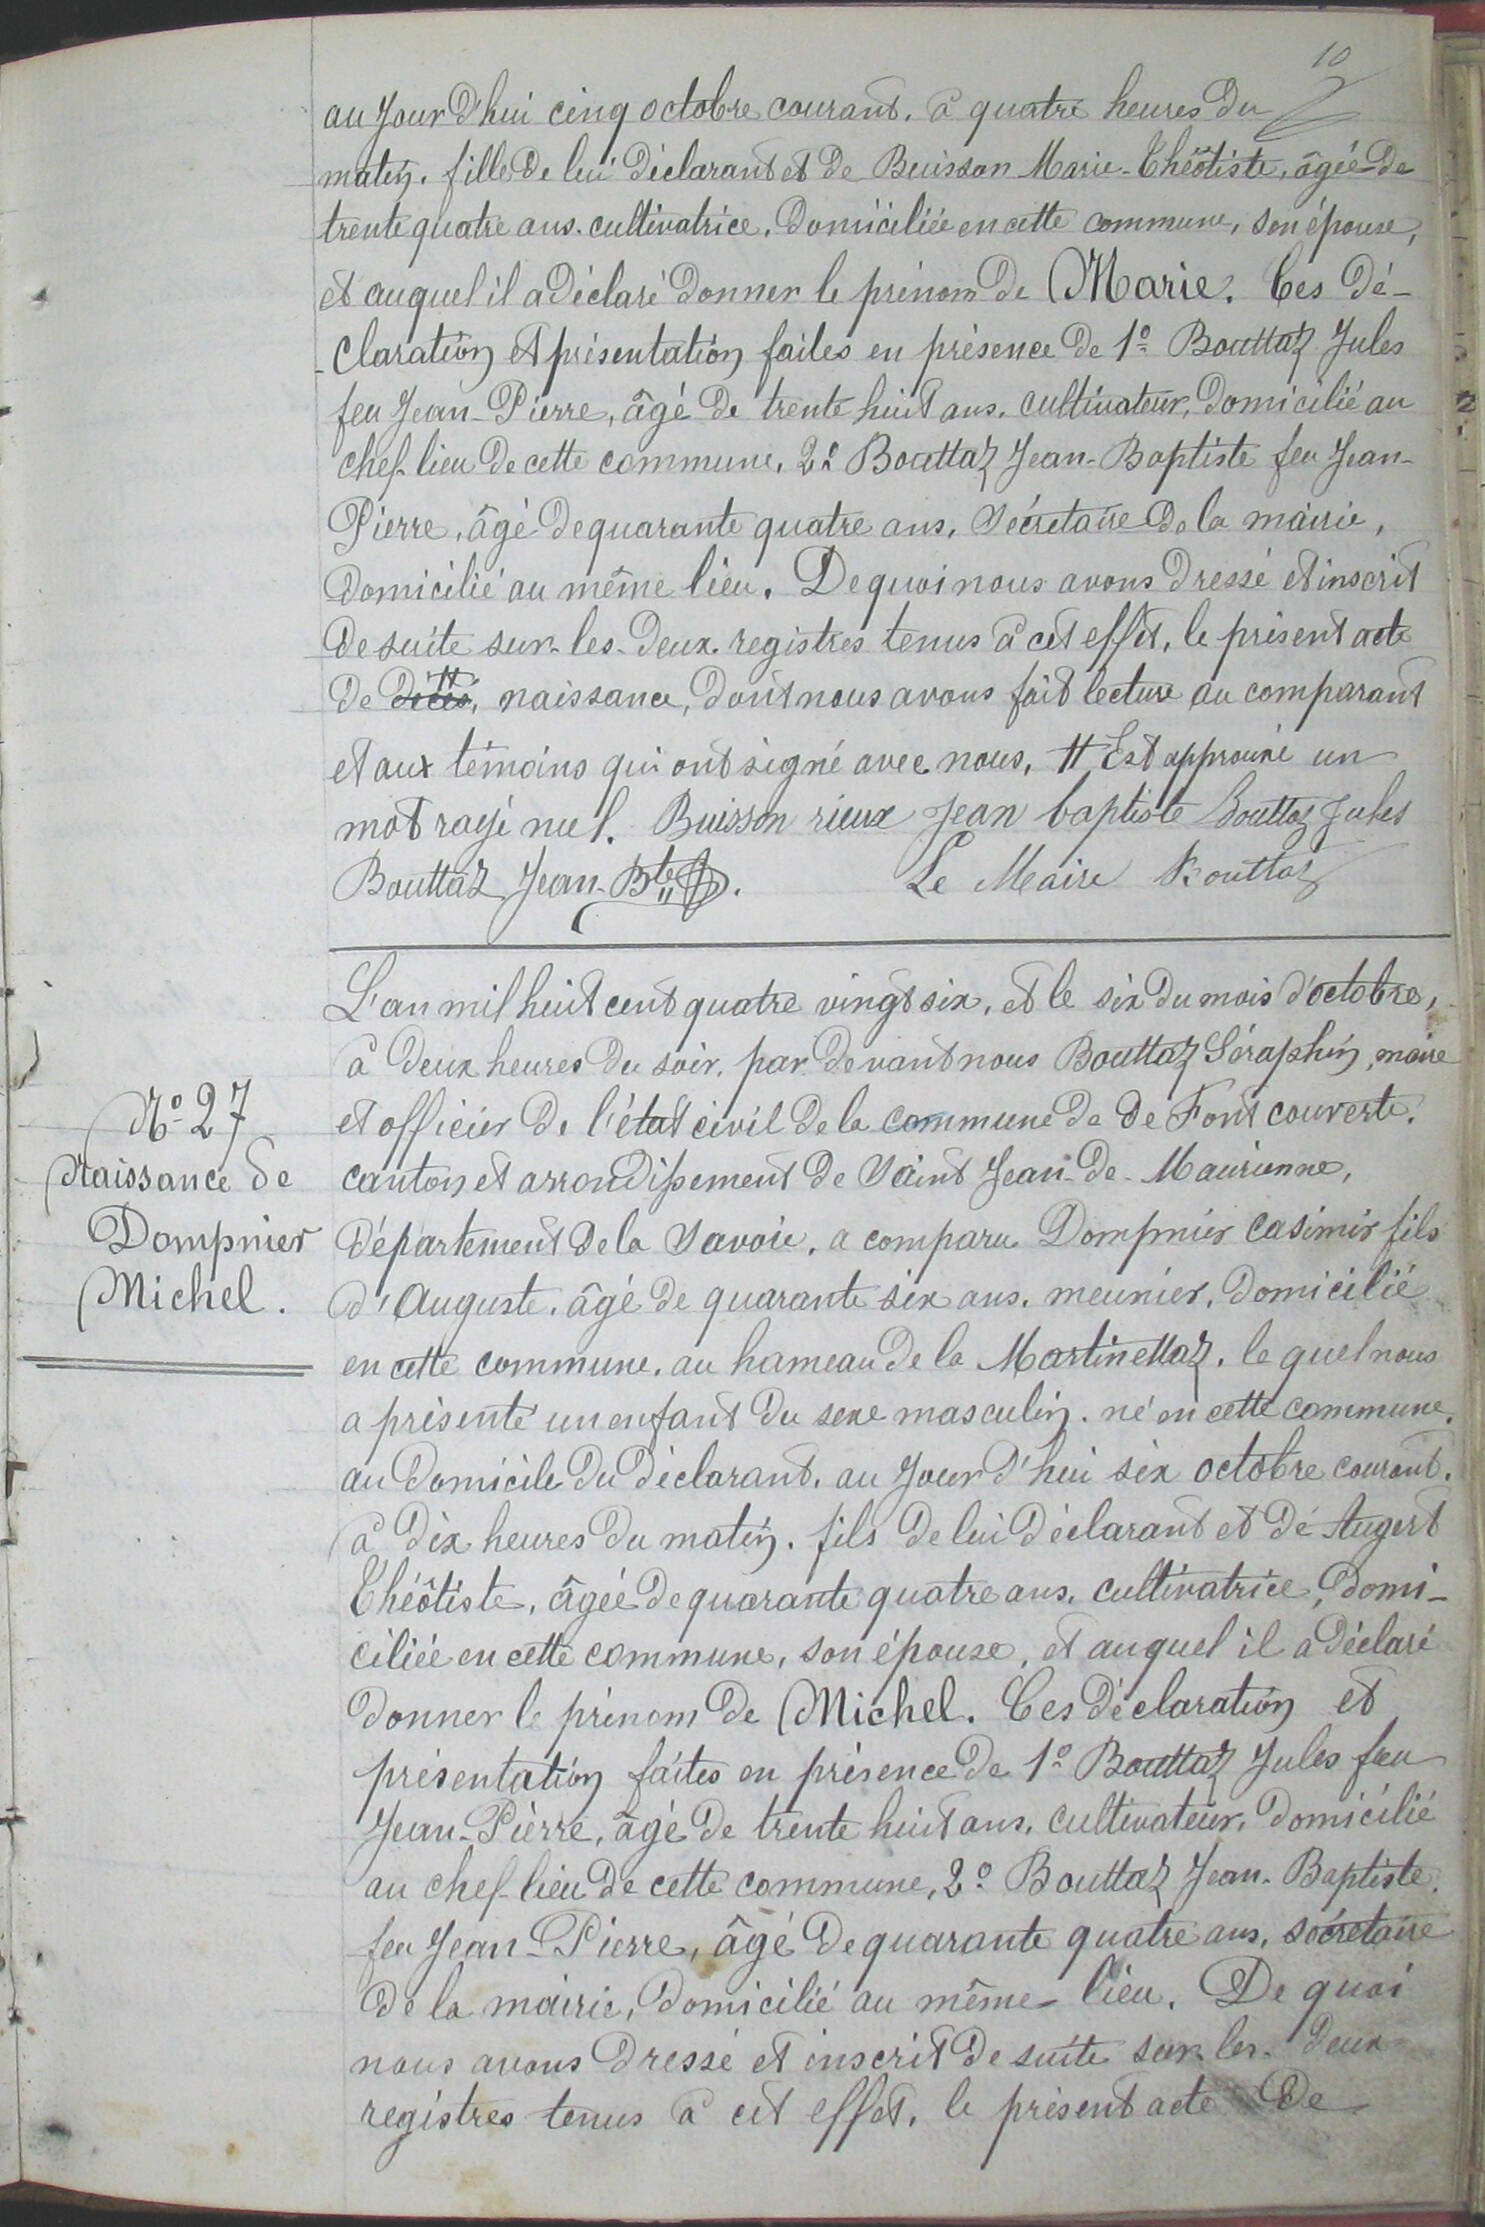 10
au jour d'hui cinq octobre courant, à quatre heures du
matin, fille de lui déclarant et de Buisson Marie-Théôtiste, âgée de
trente quatre ans, cultivatrice, domiciliée en cette commune, son épouse,
et auquel il a déclaré donner le prénom de Marie. Ces dé-
-claration et présentation faites en présence de 1º Bouttaz Jules
feu Jean-Pierre, âgé de trente huit ans, cultivateur, domicilié au
chef-lieu de cette commune, 2º Bouttaz Jean-Baptiste feu Jean-
Pierre, âgé de quarante quatre ans, Sécretaire de la mairie,
domicilié au même lieu. De quoi nous avons dressé et inscrit
de suite sur les deux registres tenus à cet effet, le présent acte
de décès, naissance, dont nous avons fait lecture au comparant
et aux témoins qui ont signé avec nous, # Est approuvé un
mot rayé nul. Buisson rieux Jean baptiste Bouttaz Jules
Bouttaz Jean-Bte. Le Maire Bouttaz
L'an mil huit cent quatre vingt six, et le six du mois d'octobre,
à deux heures du soir, par devant nous Bouttaz Séraphin, maire
et officier de l'état civil de la commune de de Fontcouverte,
canton et arrondissement de Saint Jean-de-Maurienne,
département de la Savoie, a comparu Dompnier Casimir fils
d'Auguste, âgé de quarante six ans, meunier, domicilié
en cette commune, au hameau de la Martinettaz, le quel nous
a présenté un enfant du sexe masculin, né en cette commune,
au domicile du déclarant, au jour d'hui six octobre courant,
à dix heures du matin, fils de lui déclarant et de Augert
Théôtiste, âgée de quarante quatre ans, cultivatrice, domi-
ciliée en cette commune, son épouse, et auquel il a déclaré
donner le prénom de Michel. Ces déclaration et
présentation faites en présence de 1º Bouttaz Jules feu
Jean-Pierre, âgé de trente huit ans, cultivateur, domicilié
au chef-lieu de cette commune, 2º Bouttaz Jean-Baptiste
feu Jean-Pierre, âgé de quarante quatre ans, sécretaire
de la mairie, domicilié au même lieu. De quoi
nous avons dressé et inscrit de suite sur les deux
registres tenus à cet effet, le présent acte de
Nº 27
Naissance de
Dompnier
Michel.